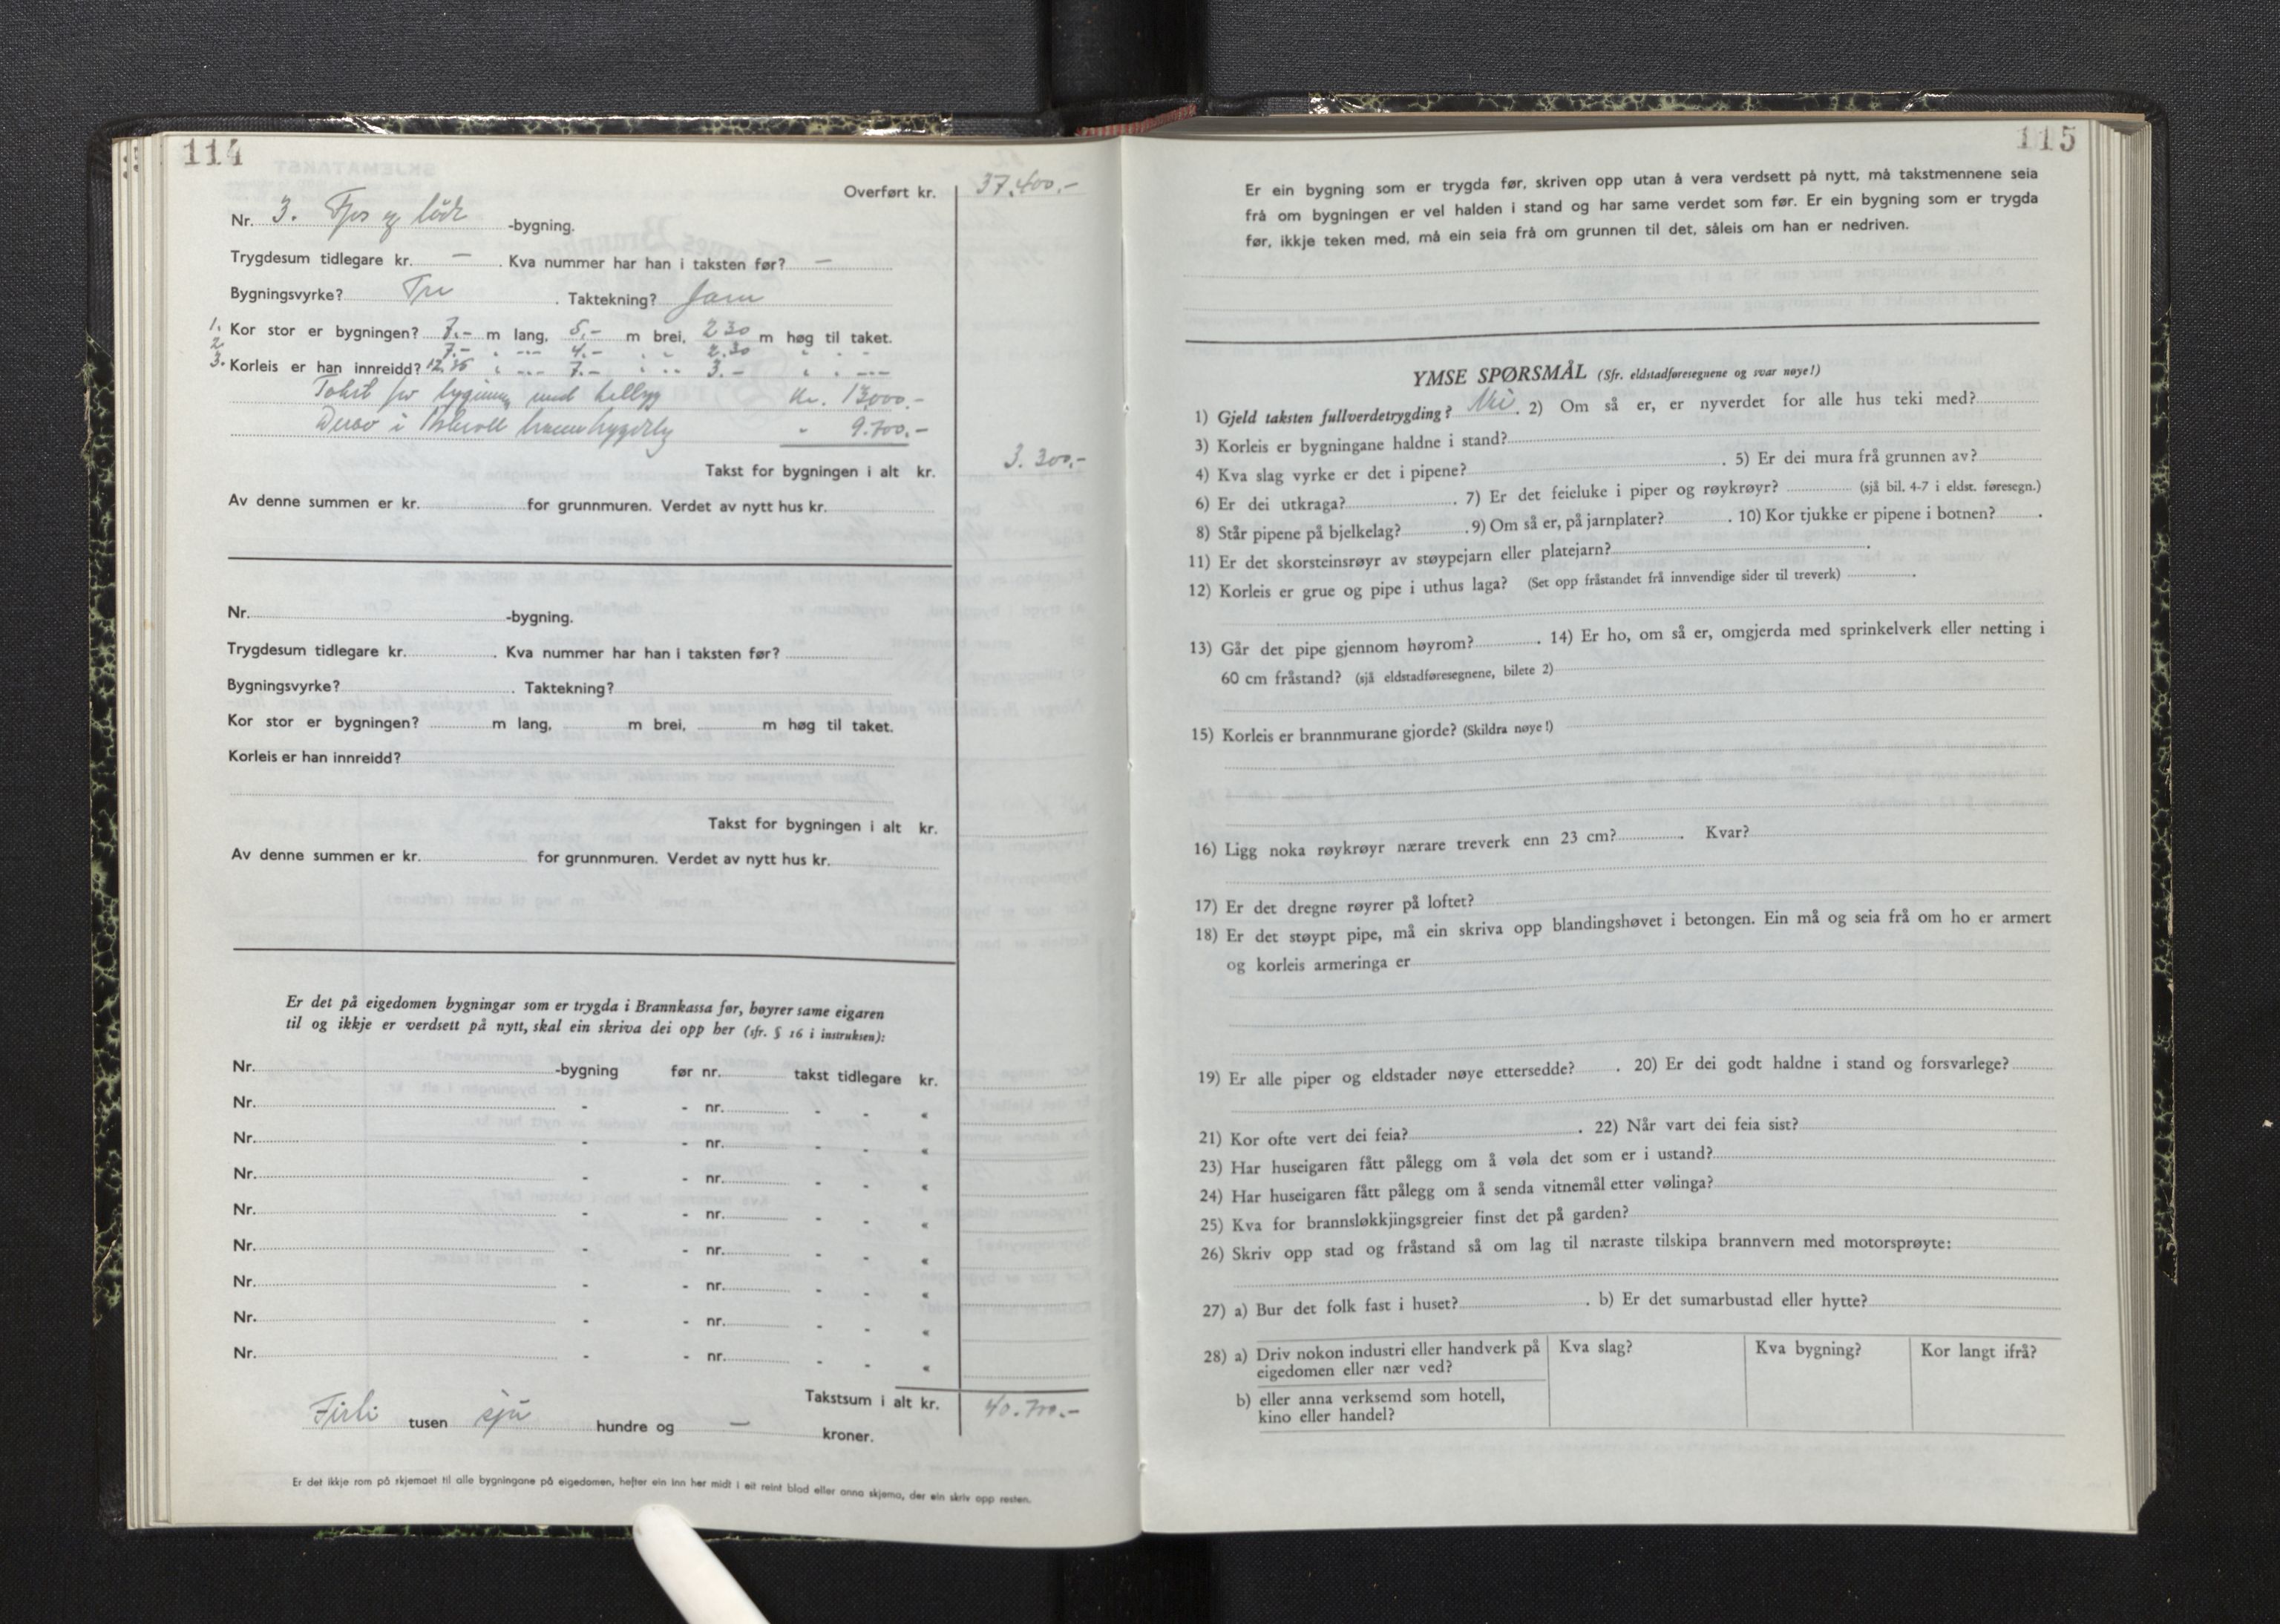 114
Overført kr. 37.400,-
Nr. 3. Fjos og löde -bygning.
Trygdesum tidlegare kr. — . Kva nummer har han i taksten før? —
Bygningsvyrke? Tre . Taktekning? Jarn
1. Kor stor er bygningen? 7.- m lang, 5,- m brei, 2 30 m høg til taket.
2. 7.- " --- 4.- " - 2.30 " - -
3. Korleis er han innreidd? 12.35 " --- 7.- " -- 3.- " " ---
Takst for bygning med tilbygg kr. 13,000.-
Derav i - 9.700,-
Takst for bygningen i alt kr. 3.300,-
Av denne summen er kr. for grunnmuren. Verdet av nytt hus kr.
Nr. -bygning.
Trygdesum tidlegare kr. . Kva nummer har han i taksten før?
Bygningsvyrke? . Taktekning?
Kor stor er bygningen? m lang, m brei, m høg til taket.
Korleis er han innreidd?
Takst for bygningen i alt kr.
Av denne summen er kr. for grunnmuren. Verdet av nytt hus kr.
Er det på eigedomen bygningar som er trygda i Brannkassa før, høyrer same eigaren
til og ikkje er verdsett på nytt, skal ein skriva dei opp her (sfr. § 16 i instruksen):
Nr. -bygning før nr. takst tidlegare kr.
Nr. - - nr. - - «
Nr. - - nr. - - «
Nr. - - nr. - - «
Nr. - - nr. - - «
Nr. - - nr. - - «
Nr. - - nr. - - «
Nr. - - nr. - - «
Nr. - - nr. - - «
Takstsum i alt kr. 40.700.-
Firti tusen sju hundre og — kroner.
Er det ikkje rom på skjemaet til alle bygningane på eigedomen, hefter ein inn her midt i eit reint blad eller anna skjema, der ein skriv opp resten.
115
Er ein bygning som er trygda før, skriven opp utan å vera verdsett på nytt, må takstmennene seia
frå om bygningen er vel halden i stand og har same verdet som før. Er ein bygning som er trygda
før, ikkje teken med, må ein seia frå om grunnen til det, såleis om han er nedriven.
YMSE SPØRSMÅL (Sfr. eldstadføresegnene og svar nøye!)
1) Gjeld taksten fullverdetrygding? Nei . 2) Om så er, er nyverdet for alle hus teki med?
3) Korleis er bygningane haldne i stand?
4) Kva slag vyrke er det i pipene? . 5) Er dei mura frå grunnen av?
6) Er dei utkraga? . 7) Er det feieluke i piper og røykrøyr? (sjå bil. 4-7 i eldst. føresegn.)
8) Står pipene på bjelkelag? . 9) Om så er, på jarnplater? . 10) Kor tjukke er pipene i botnen? .
11) Er det skorsteinsrøyr av støypejarn eller platejarn? .
12) Korleis er grue og pipe i uthus laga? (Set opp fråstandet frå innvendige sider til treverk) .
13) Går det pipe gjennom høyrom? . 14) Er ho, om så er, omgjerda med sprinkelverk eller netting i
60 cm fråstand? (sjå eldstadføresegnene, bilete 2)
15) Korleis er brannmurane gjorde? (Skildra nøye!)
16) Ligg noka røykrøyr nærare treverk enn 23 cm? . Kvar?
17) Er det dregne røyrer på loftet?
18) Er det støypt pipe, må ein skriva opp blandingshøvet i betongen. Ein må og seia frå om ho er armert
og korleis armeringa er
19) Er alle piper og eldstader nøye ettersedde? . 20) Er dei godt haldne i stand og forsvarlege?
21) Kor ofte vert dei feia? . 22) Når vart dei feia sist?
23) Har huseigaren fått pålegg om å vøla det som er i ustand?
24) Har huseigaren fått pålegg om å senda vitnemål etter vølinga?
25) Kva for brannsløkkjingsgreier finst det på garden?
26) Skriv opp stad og fråstand så om lag til næraste tilskipa brannvern med motorsprøyte:
27) a) Bur det folk fast i huset? . b) Er det sumarbustad eller hytte?
28) a) Driv nokon industri eller handverk på eigedomen eller nær ved? Kva slag? Kva bygning? Kor langt ifrå?
b) eller anna verksemd som hotell,
kino eller handel?